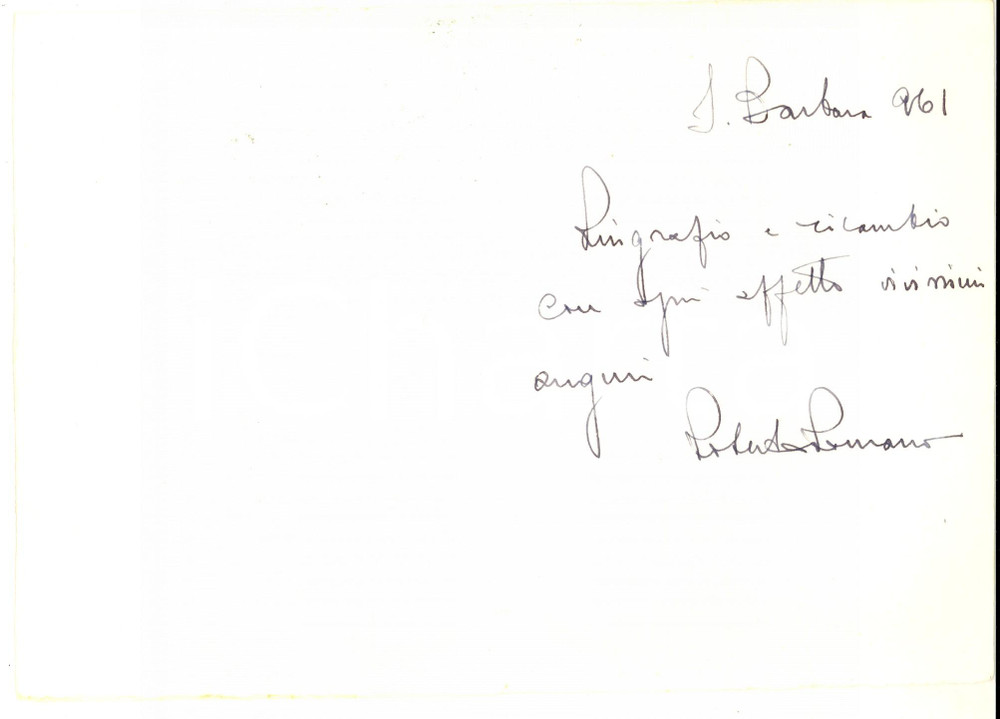 S. Barbara 961
Ringrazio e ricambio
con ogni affetto vivissimi
auguri
Roberto Romano